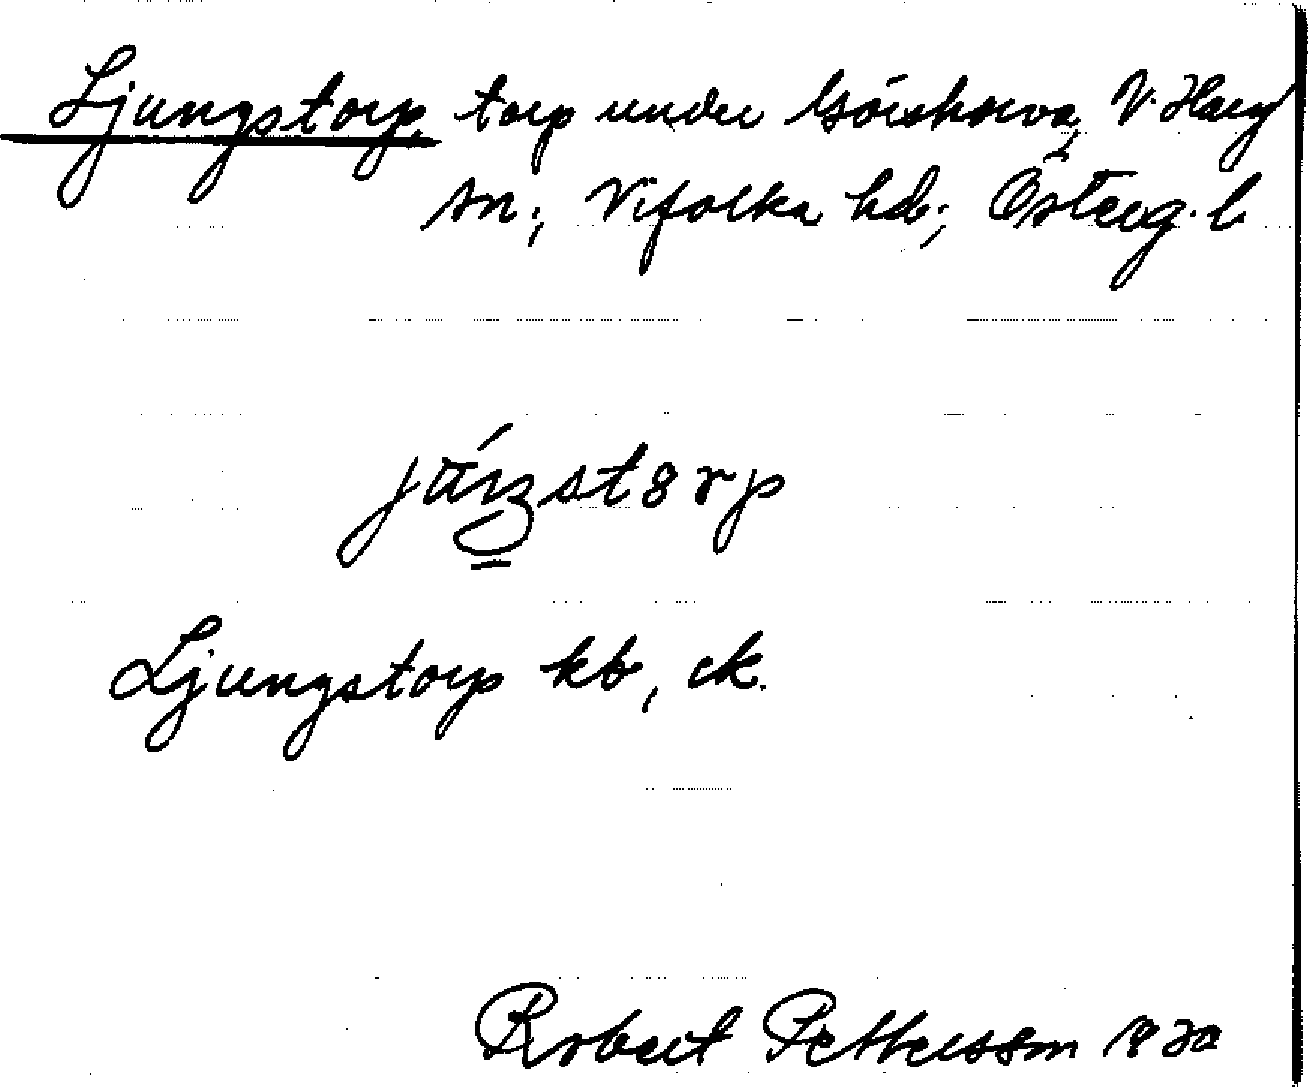 Ljungstorp, torp under Görshorva, V. Harg
sn.; Vifolka hd.; Österg. l
Ljungstorp kb, ek.
Robert Pettersson 1920